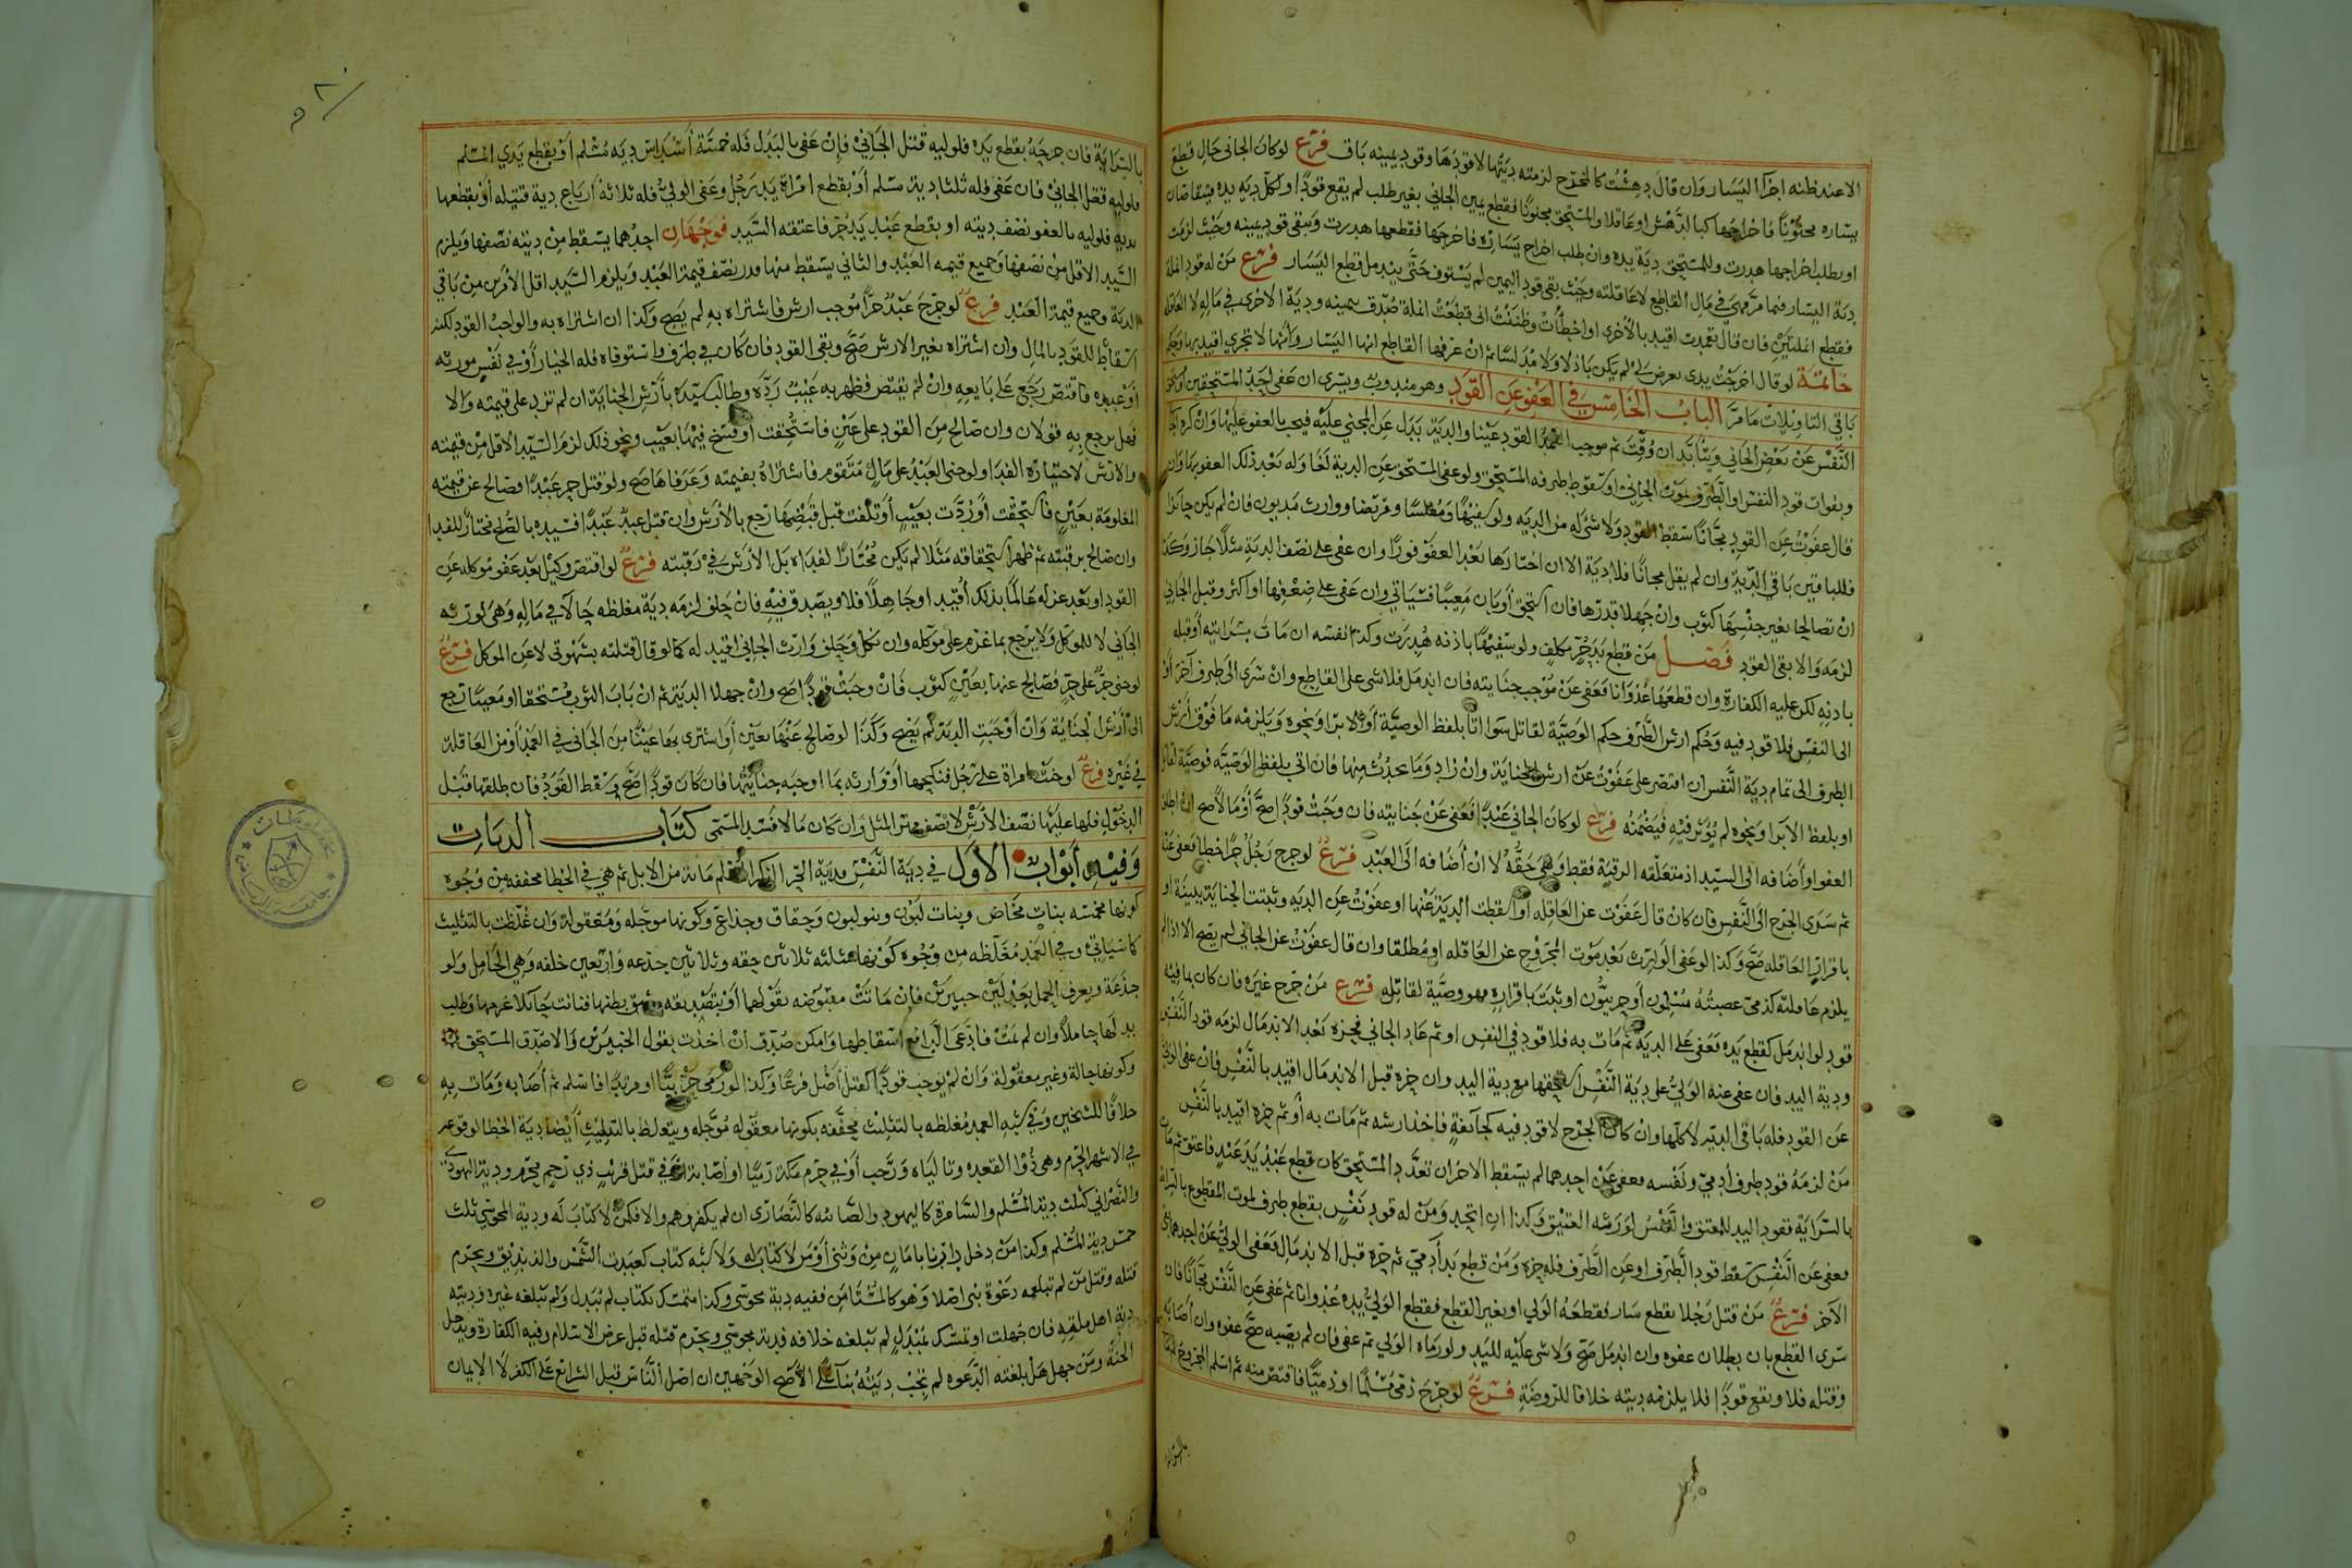 الا عند ظنه اجزآ اليسار وان قال دهشت كالمخرج لزمته ديتها لا قودها وقود يمينه باق فرع لو كان الجانى حال قطع
يساره مجنونا فاخراجها كبالدهش او عاقلا والمستحق مجنونا فقطع يمين الجاني بغير طلب لم يقع قودا ولكل دية يده
او بطلب اخراجها هدرت وللمستحق دية يده وان طلب اخراج يساره فاخرجها فقطعها هدرت ويبقى قود يمينه وحيث لزمت
دية اليسار فيما مر فهي في مال القاطع لا عاقلته وحيث بقى قود اليمين لم يستوف حتى يندمل قطع اليسار فرع من له قود انملة
فقطع انملتين فان قال تعمدت اقيد بالاخرى او اخطأت وظننت انى قطعت انملة صدق بيمينه ودية الاخرى في ماله لا العاقلة
خاتمة لو قال اخرجت يدى
باقي التاويلات ما مر الباب الخامس في العفو عن القود وهو مندوب ويسرى ان عفى احد المستحقين
النفس عن بعض الجاني ويتأبد ان وقت ثم موجب العمد القود عينا والدية بدل عن المجني عليه فيجب بالعفو عليها وان كره
وبفوات قود النفس او الطرف بموت الجاني او سقوط طرفه المستحق ولو عفى المستحق عن الدية لغا وله بعد ذلك العفو بها وان
قال عفوت عن القود مجانا سقط القود ولا شئ له من الدية ولو سفيها ومفلسا ومريضا ووارث مديون فان لم يكن جائزا
فللباقين باقي الدية وان لم يقل مجانا فلا دية الا ان اختارها بعد العفو فورا وان عفى على نصف الدية مثلا جاز وكذا
ان تصالحا بغير جنسها كثوب وان جهلا قدرها فان استحق او بان معيبا فسياتي وان عفى على ضعفها او اكثر وقبل الجاني
لزمه والا بقى القود فصل من قطع يد حر مكلف ولو سفيها باذنه هدرت وكذا نفسه ان مات بسرايته او قتله
باذنه لكن عليه الكفارة وان قطعها عدوانا فعفى عن موجب جنايته فان اندمل فلا شى على القاطع وان سرى الى طرف آخر او
الى النفس فلا قود فيه وحكم ارش الطرف حكم الوصية لقاتل سوا اتا بلفظ الوصية او الابرا ونحوه ويلزمه ما فوق ارش
الطرف الى تمام دية النفس ان اقتصر على عفوت عن ارش الجناية وان زاد وما يحدث منها فان اتى بلفظ الوصية فوصية
او بلفظ الابرا ونحوه لم يؤثر فيه فيضمنه فرع لو كان الجاني عبدا فعفى عن جنايته فان وجبت قودا صح أو مالا صح ان اطلق
العفو او أضافه الى السيد اذ متعلقه الرقبة فقط وهى حقه لا ان أضافه الى العبد فرع لو جرح رجل حرا خطا فعفى عنه
ثم سرى الجرح الى النفس فان كان قال عفوت عن العاقله او اسقطت الدية عنها او عفوت عن الديه وثبتت الجناية ببينة او
باقرار العاقله صح وكذا لو عفى الوارث بعد موت المجروح عن العاقله او مطلقا وان قال عفوت عن الجاني لم يصح الا اذا لم
يلزم عاقلته كذمى عصبته مسلمون أو حربيون او ثبت باقراره فهو وصية لقاتله فرع من جرح غيره فان كان بما فيه
قود لو اندمل كقطع يده فعفى على الدية ثم مات به فلا قود في النفس او ثم عاد الجاني فحزه بعد الاندمال لزمه قود النفس
ودية اليد فان عفى عنه الولي على دية النفس استحقها مع دية اليد وان حزه قبل الاندمال اقيد بالنفس فان عفى الولي
عن القود فله باقى الدية لا كلها وان كان الجرح لا قود فيه كجائفة فاخذ ارشه ثم مات به أو ثم حزه اقيد بالنفس
من لزمه قود طرف أدمي ونفسه فعفى عن احدهما لم يسقط الاخر ان تعدد المستحق كان قطع عبد يد عبد فاعتق ثم مات
بالسراية فقود اليد للمعتق والنفس لورثة العتيق وكذا ان اتحد ومن له قود نفس بقطع طرف لموت المقطوع بالسراية
فعفى عن النفس سقط قود الطرف او عن الطرف فله حزه ومن قطع يد آدمي ثم حزه قبل الاندمال فعفى الولي عن احدهما
الآخر فرع من قتل رجلا بقطع سار فقطعه الولي او بغير القطع فقطع الولي يده عدوانا ثم عفى عن النفس مجانا فان
سرى القطع بان بطلان عفوه وان اندمل صح ولا شى عليه لليد ولو رماه الولي ثم عفى فان لم يصبه صح عفوه وان أصابه
وقتله فلا ويقع قودا فلا يلزمه ديته خلافا للروضة فرع لو جرح ذمى مسلما او ذميا فاقتص منه ثم اسلم المجروح
بالسراية
بالسراية فان جرحه بقطع يده فلوليه قتل الجاني فإن عفى بالبدل فله خمسة أسداس دية مسلم أو بقطع يدي المسلم
فلوليه قتل الجاني فان عفى فله ثلثا دية مسلم أو بقطع امراة يد رجل وعفى الولي فله ثلاثة ارباع دية قتيله أو بقطعها
يديه فلوليه بالعفو نصف ديته او بقطع عبد يد حر فاعتقه السيد فوجهان احدهما يسقط من ديته نصفها ويلزم
السيد الاقل من نصفها وجميع قيمه العبد والثاني يسقط منها قدر نصف قيمة العبد ويلزم السيد اقل الأمرين من باقي
الدية وجميع قيمة العبد فرع لو جرح عبد حرا موجب ارش فاشتراه به لم يصح وكذا ان اشتراه به والواجب القود لكنه
اسقاط للقود بالمال وان اشتراه بغير الارش صح وبقى القود فان كان في طرف واستوفاه فله الخيار أو في نفس مورثه
أو عبده فاقتص رجع على بايعه وان لم يقتص فظهر به عيب رده وطالب سيده بأرش الجناية ان لم تزد على قيمته والا
فهل يرجع به قولان وان صالح من القود على عين فاستحقت أو فسخ فيها بعيب ونحو ذلك لزم السيد الاقل من قيمته
والارش لاختياره الفدا ولو جنى العبد على مال متقوم فاشتراه بقيمته وعرفاها صح ولو قتل حر عبدا فصالح عن قيمته
المعلومة بعين فاستحقت أو ردت بعيب أو تلفت قبل قبضها رجع بالأرش وان قتل عبد عبدا فسيده بالصلح مختار للفدا
وان صالح برقبته ثم ظهر استحقاقه مثلا لم يكن مختارا لفداه بل الأرش في رقبته فرع لو اقتص وكيل بعد عفو موكله عن
القود او بعد عزله عالما بذلك أقيد او جاهلا فلا ويصدق فيه فان حلف لزمه دية مغلظه حالا في ماله وهى لورثه
الجاني لا للموكل ولا يرجع بما غرم على موكله وان نكل وحلف وارث الجاني اقيد له كما لو قال قتلته بشهوتى لا عن الموكل فرع
لو جنى حر على حر فصالح عنها بعين كثوب فان وجبت قودا صح وان جهلا الدية ثم ان بان الثوب مستحقا او معيبا رجع
الى أرش الجناية وان أوجبت الدية لم يصح وكذا لو صالح عنها بعين أو اشترى بها عينا من الجاني في العمد أو من العاقلة
في غيره فرع لو جنت امراة على رجل فنكحها أو وارثه بما اوجبه جنايتها فان كان قودا صح وسقط القود فان طلقها قبل
الدخول فلها عليها نصف الأرش لا نصف مهر المثل وان كان مالا فسد المسمى كتاب الديات
وفيه أبواب الاول في دية النفس ودية الحر الذكر المسلم مائة من الابل ثم هي في الخطا مخففه من وجوه
كونها مخمسه بنات مخاض وبنات لبون وبنو لبون وحقاق وجذاع وكونها موجله ومعقولة وان غلظت بالتثليث
كما سياتي وفي العمد مغلظه من وجوه كونها مثلثه ثلاثين حقه وثلاثين جذعه واربعين خلفه وهي الحامل ولو
جذعة ويعرف الحمل بعدلين خبيرين فان ماتت مقبوضه بقولهما أو بتصديقه وشق بطنها فبانت حائلا غرمها وطلب
بدلها حاملا وان لم تمت فادعى الدافع اسقاطها وامكن صدق ان اخذت بقول الخبيرين والا صدق المستحق
وكونها حالة وغير معقولة وان لم يوجب قودا كقتل أصل فرعا وكذا لو رمى حربيا او مرتدا فاسلم ثم أصابه ومات به
خلافا للشيخين وفي شبه العمد مغلظه بالتثليث مخففه بكونها معقوله موجله ويتغلظ بالتثليث أيضا دية الخطا لوقوعه
في الاشهر الحرم وهى ذو القعده وتالياه ورجب أو في حرم مكة رميا او أصابة او في قتل قريب ذي رحم محرم ودية اليهودي
والنصراني كثلث دية المسلم والسامرة كاليهود والصابئه كالنصارى ان لم يكفروهم والا فكمن لا كتاب له ودية المجوسي ثلث
خمس دية المسلم وكذا من دخل دارنا بامان من وثنى أو من لا كتاب له ولا شبه كتاب كعبدة الشمس والزنديق ويحرم
قتله وقتل من لم تبلغه دعوة نبى اصلا وهو كالمستأمن ففيه دية مجوسى وكذا متمسك بكتاب لم يبدل ولم تبلغه غيره فديته
دية اهل ملته فان جهلت او تمسك بمبدل لم تبلغه خلافه فدية مجوسي ويحرم قتله قبل عرض الاسلام وفيه الكفارة ويدخل
الجنة ومن جهل هل بلغته الدعوه لم تجب ديته بناء على الأصح الوجهين ان اصل الناس قبل الشرائع على الكفر لا الايمان